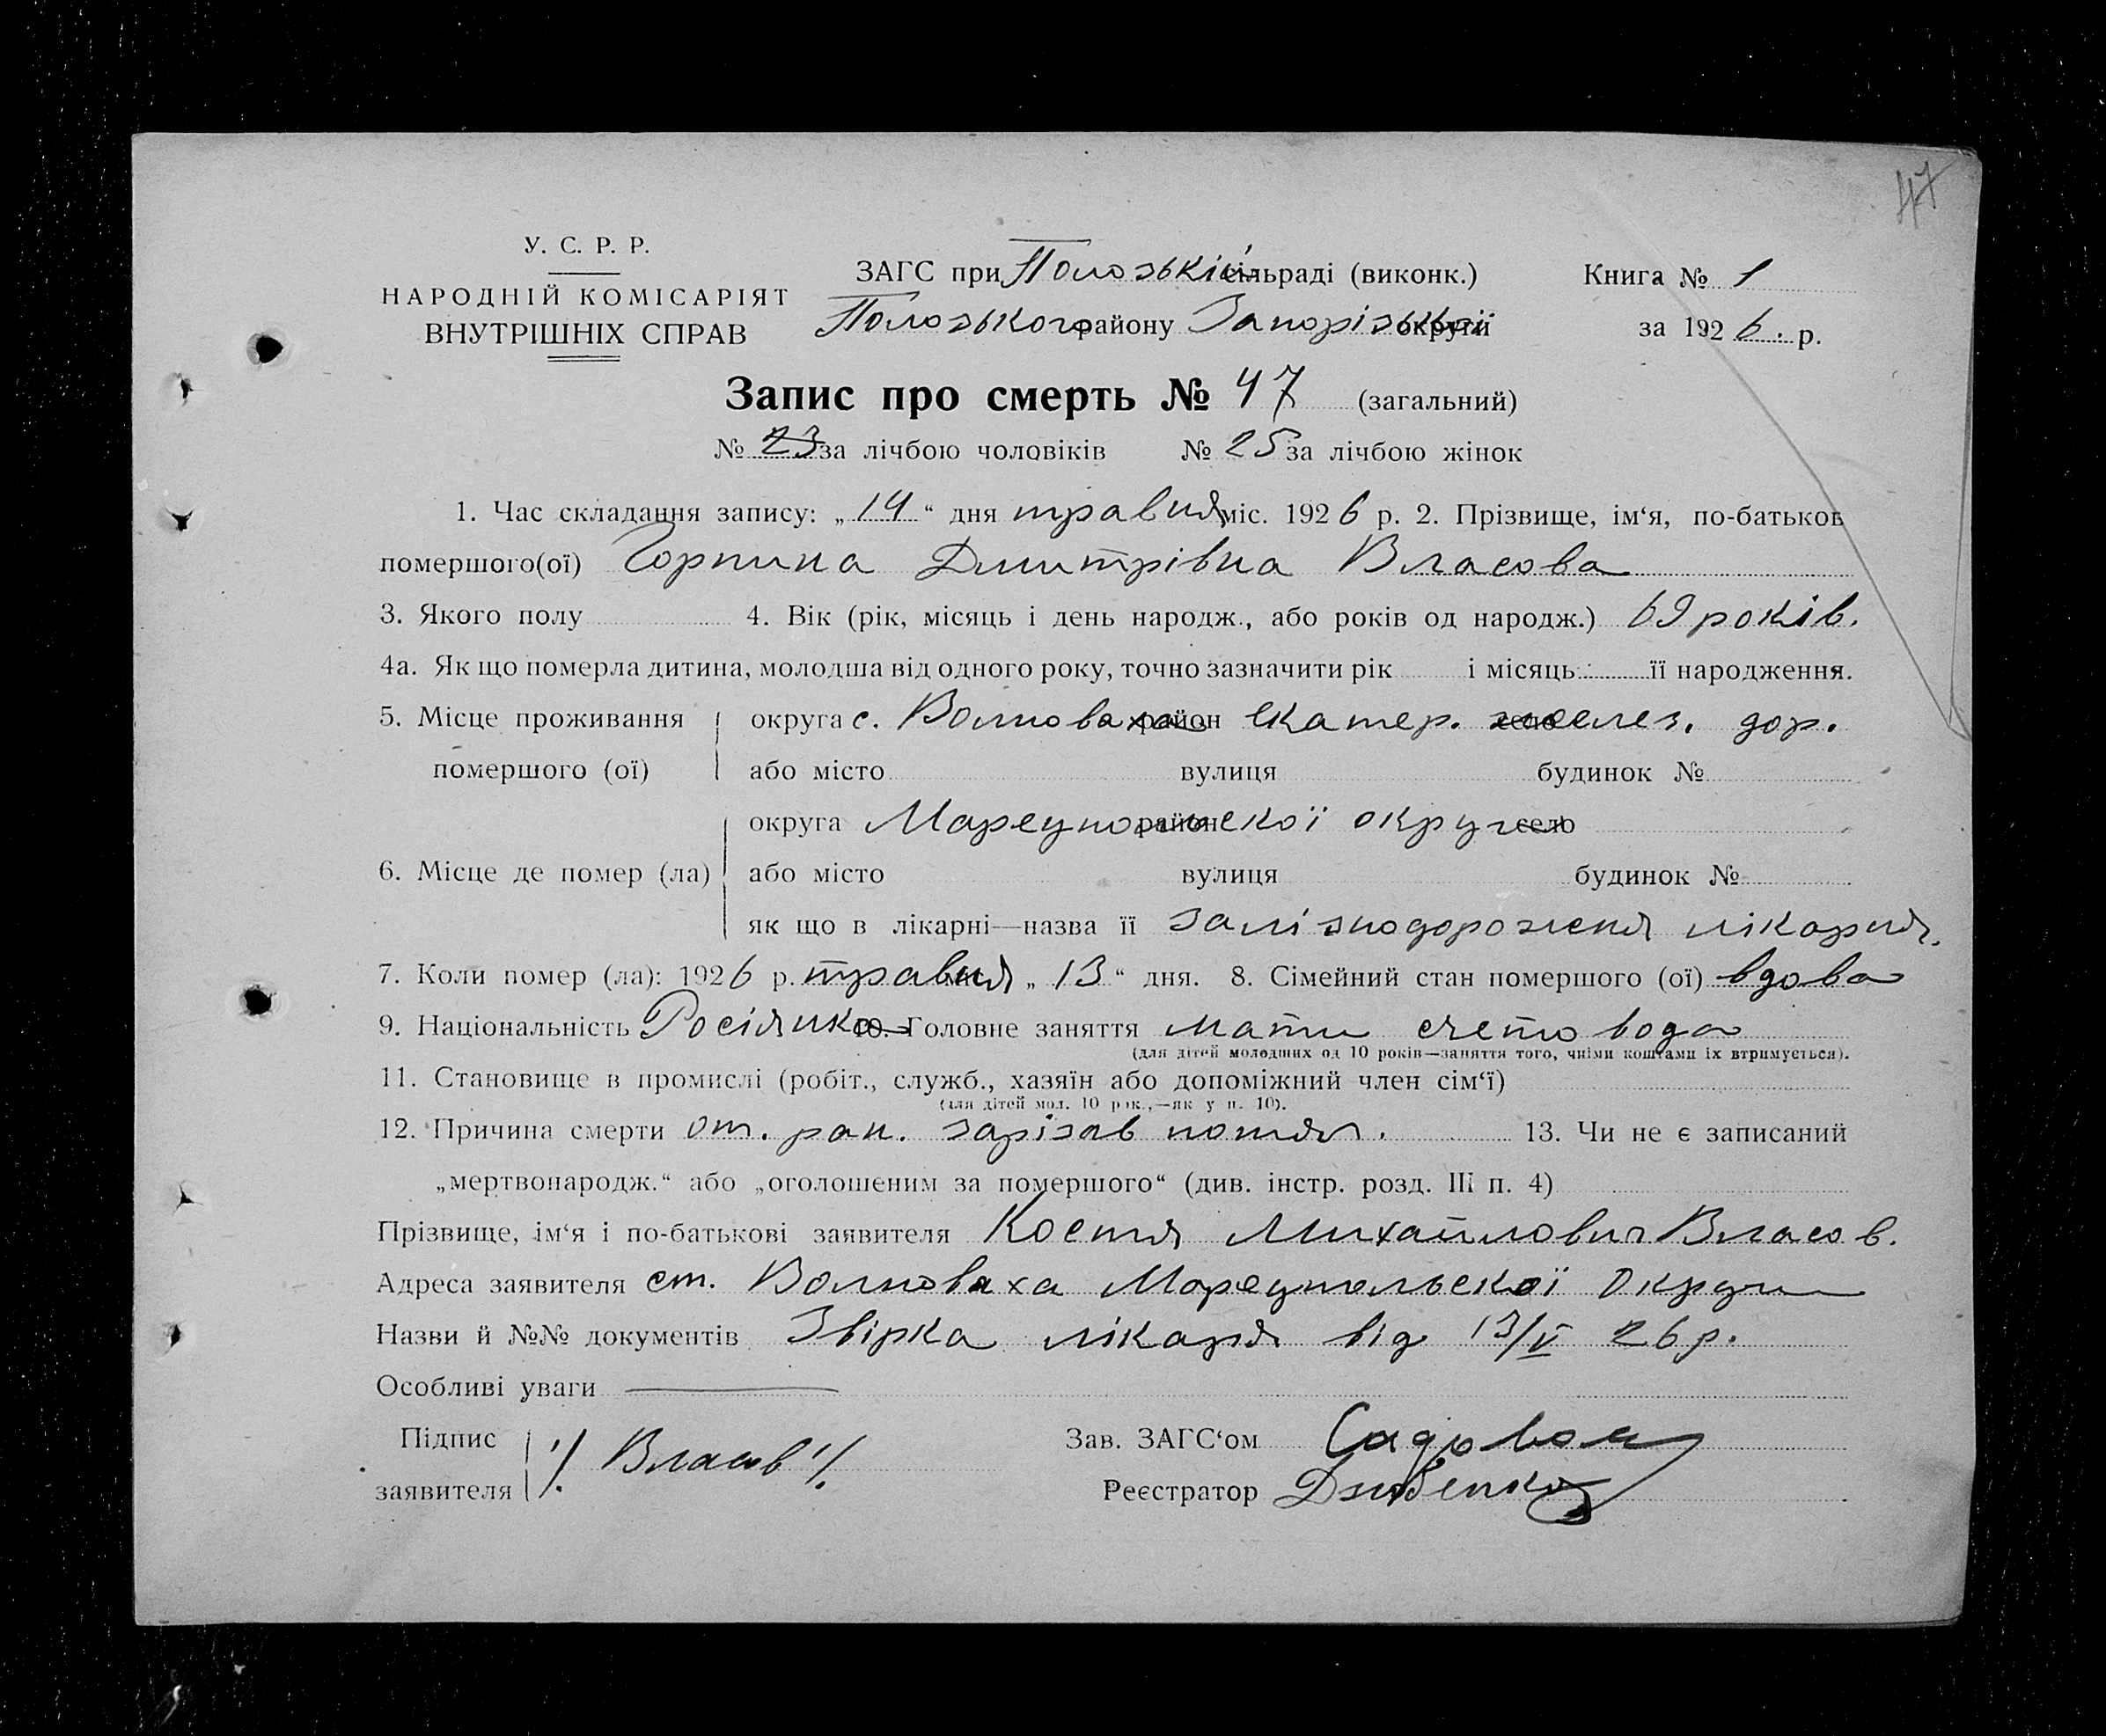 47
У. С. Р. Р.
НАРОДНІЙ КОМІСАРІЯТ
ВНУТРІШНІХ СПРАВ
ЗАГС при Полозькій сільраді (виконк.)
Полозького району Запорізької округи
Книга № 1
за 1926. р.
Запис про смерть № 47 (загальний)
№ 23 за лічбою чоловіків № 25 за лічбою жінок
1. Час складання запису: „14“ дня травня міс. 1926 р. 2. Прізвище, ім‘я, по-батьков
помершого(ої) Горпина Дмитрівна Власова
3. Якого полу 4. Вік (рік, місяць і день народж., або років од народж.) 69 років.
4а. Як що померла дитина, молодша від одного року, точно зазначити рік і місяць її народження.
5. Місце проживання округа с. Волноваха район Екатер. село желез. дор.
помершого (ої) або місто вулиця будинок №
округа Мареупольскої район округи село
6. Місце де помер (ла) або місто вулиця будинок №
як що в лікарні—назва її залізнодорожня лікарня.
7. Коли помер (ла): 1926 р. травня „13“ дня. 8. Сімейний стан помершого (ої) вдова
9. Національність Росіянка 10. Головне заняття мати счетовода
(для дітей молодших од 10 років—заняття того, чиїми коштами їх втримується).
11. Становище в промислі (робіт., служб., хазяїн або допоміжний член сім‘ї)
(для дітей мол. 10 рок.,—як у п. 10).
12. Причина смерти от. ран. зарізав потяг. 13. Чи не є записаний
„мертвонародж.“ або „оголошеним за помершого“ (див. інстр. розд. III п. 4)
Прізвище, ім‘я і по-батькові заявителя Костя Михайлович Власов.
Адреса заявителя ст. Волноваха Мареупольскої Округи
Назви й №№ документів Звірка лікаря від 13/V 26 р.
Особливі уваги
Підпис
заявителя Власов
Зав. ЗАГС‘ом
Реєстратор